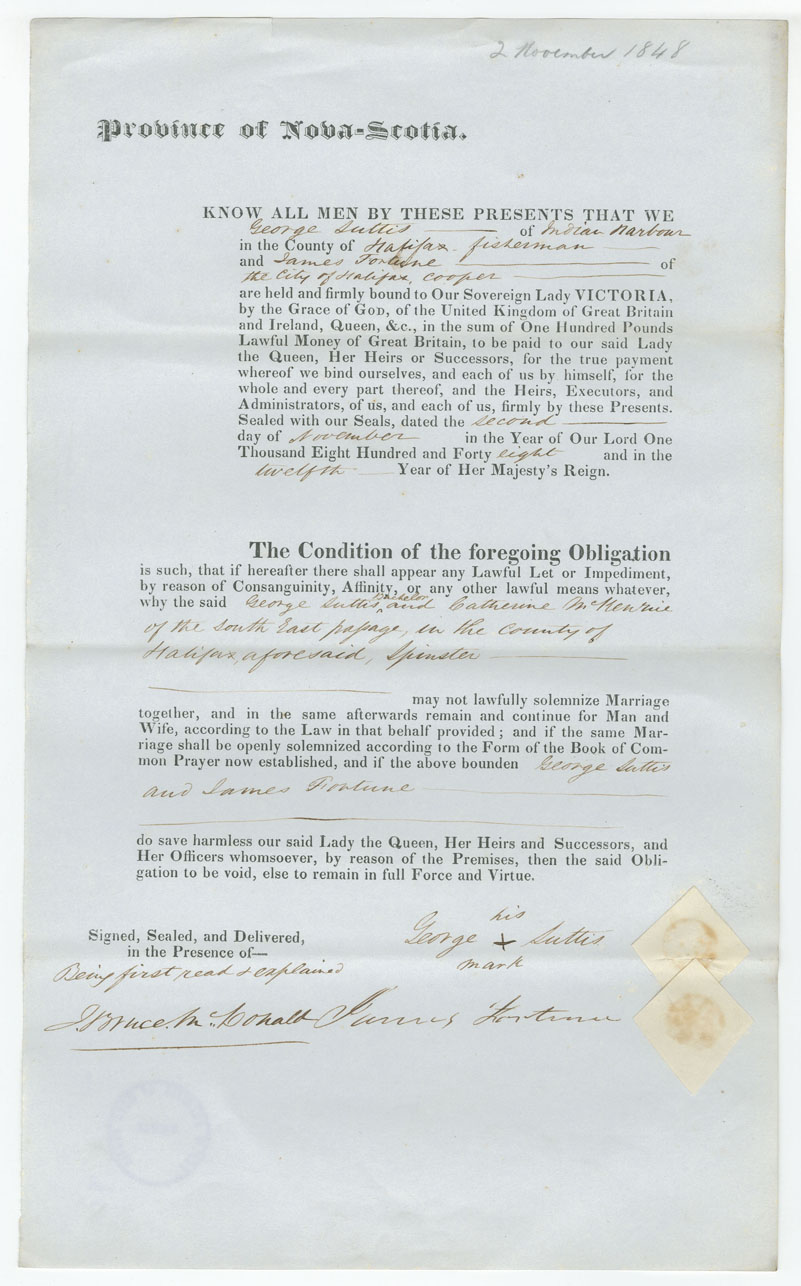 2 November 1848
Province of Nova-Scotia.
KNOW ALL MEN BY THESE PRESENTS THAT WE
George Suttis of Indian Harbour
in the County of Halifax fisherman
and James Fortune of
the City of Halifax, Cooper
are held and firmly bound to Our Sovereign Lady VICTORIA,
by the Grace of GOD, of the United Kingdom of Great Britain
and Ireland, Queen, &c., in the sum of One Hundred Pounds
Lawful Money of Great Britain, to be paid to our said Lady
the Queen, Her Heirs or Successors, for the true payment
whereof we bind ourselves, and each of us by himself, for the
whole and every part thereof, and the Heirs, Executors, and
Administrators, of us, and each of us, firmly by these Presents.
Sealed with our Seals, dated the second
day of November in the Year of Our Lord One
Thousand Eight Hundred and Forty eight and in the
twelfth Year of Her Majesty's Reign.
The Condition of the foregoing Obligation
is such, that if hereafter there shall appear any Lawful Let or Impediment,
by reason of Consanguinity, Affinity, or any other lawful means whatever,
why the said George Suttis, Bachelor and Catherine McKenzie
of the South East passage, in the County of
Halifax, aforesaid, Spinster
may not lawfully solemnize Marriage
together, and in the same afterwards remain and continue for Man and
Wife, according to the Law in that behalf provided; and if the same Mar-
riage shall be openly solemnized according to the Form of the Book of Com-
mon Prayer now established, and if the above bounden George Suttis
and James Fortune
do save harmless our said Lady the Queen, Her Heirs and Successors, and
Her Officers whomsoever, by reason of the Premises, then the said Obli-
gation to be void, else to remain in full Force and Virtue.
his
George + Suttis
mark
Signed, Sealed, and Delivered,
in the Presence of—
Being first read & explained
J. Bruce McDonald James Fortune